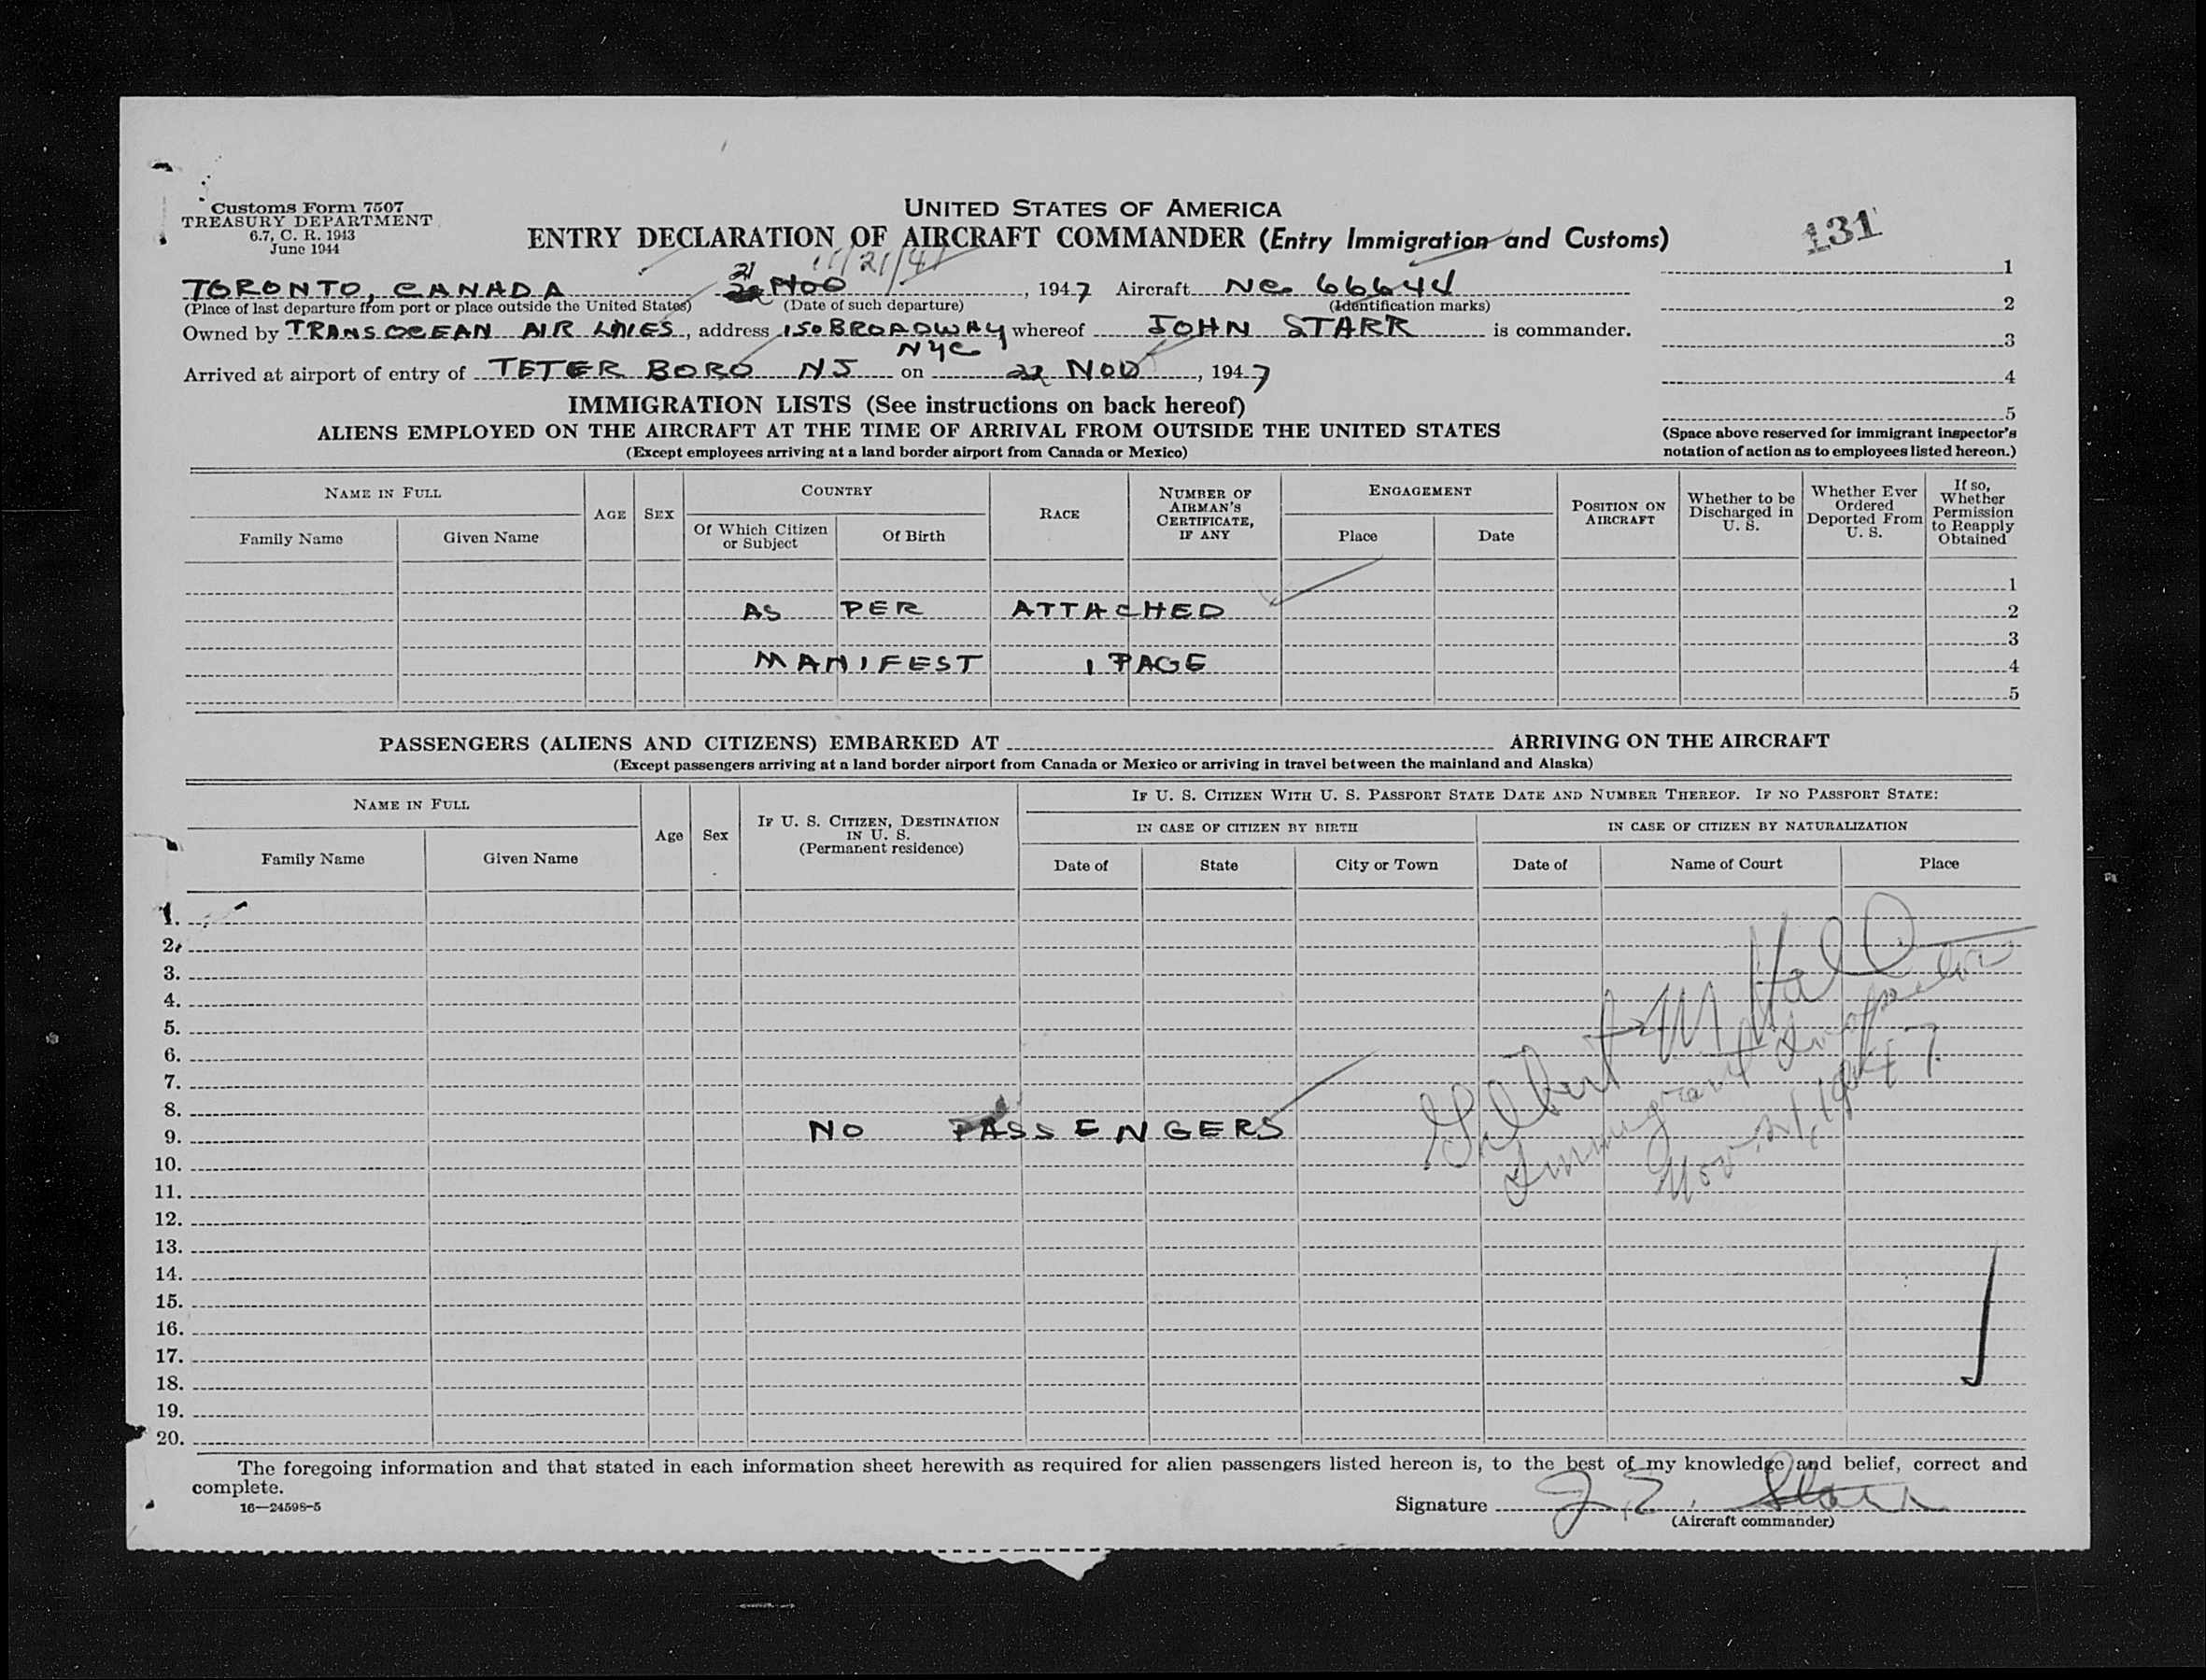 Customs Form 7507
TREASURY DEPARTMENT
6.7, C. R. 1943
June 1944
UNITED STATES OF AMERICA
ENTRY DECLARATION OF AIRCRAFT COMMANDER (Entry Immigration and Customs)
131
11/21/47
21
TORONTO, CANADA 22 NOV, 1947 Aircraft NC 66644
(Place of last departure from port or place outside the United States) (Date of such departure) (Identification marks)
Owned by TRANSOCEAN AIR LINES, address 150 BROADWAY whereof JOHN STARR is commander.
NYC
Arrived at airport of entry of TETER BORO NJ on 22 NOV, 1947
1
2
3
4
5
(Space above reserved for immigrant inspector's
notation of action as to employees listed hereon.)
IMMIGRATION LISTS (See instructions on back hereof)
ALIENS EMPLOYED ON THE AIRCRAFT AT THE TIME OF ARRIVAL FROM OUTSIDE THE UNITED STATES
(Except employees arriving at a land border airport from Canada or Mexico)
NAME IN FULL
Family Name Given Name
AGE SEX
COUNTRY
Of Which Citizen or Subject Of Birth
RACE
NUMBER OF AIRMAN'S CERTIFICATE, IF ANY
ENGAGEMENT
Place Date
POSITION ON AIRCRAFT
Whether to be Discharged in U. S.
Whether Ever Ordered Deported From U. S.
If so, Whether Permission to Reapply Obtained
1
AS PER ATTACHED 2
3
MANIFEST 1 PAGE 4
5
PASSENGERS (ALIENS AND CITIZENS) EMBARKED AT ARRIVING ON THE AIRCRAFT
(Except passengers arriving at a land border airport from Canada or Mexico or arriving in travel between the mainland and Alaska)
NAME IN FULL
Family Name Given Name
Age Sex
IF U. S. CITIZEN, DESTINATION IN U. S. (Permanent residence)
IF U. S. CITIZEN WITH U. S. PASSPORT STATE DATE AND NUMBER THEREOF. IF NO PASSPORT STATE:
IN CASE OF CITIZEN BY BIRTH IN CASE OF CITIZEN BY NATURALIZATION
Date of State City or Town Date of Name of Court Place
1.
2.
3.
4.
5.
6.
7.
8.
9. NO PASSENGERS
10.
11.
12.
13.
14.
15.
16.
17.
18.
19.
20.
Gilbert M Hall
Immigrant Inspector
Nov. 21, 1947
The foregoing information and that stated in each information sheet herewith as required for alien passengers listed hereon is, to the best of my knowledge and belief, correct and
complete.
16—24598-5
Signature J. E. Starr
(Aircraft commander)